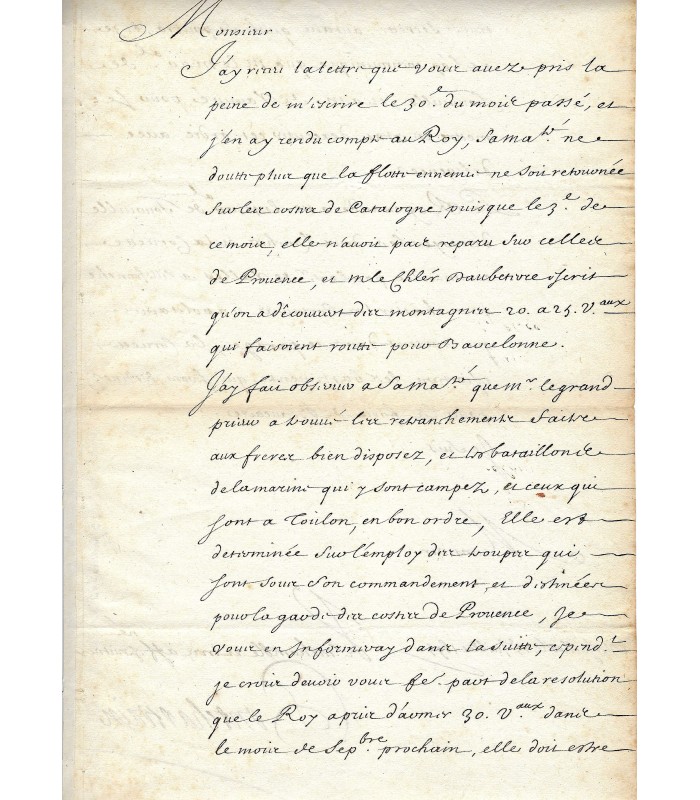 Monsieur
J'ay receu la lettre que vous avez pris la
peine de m'escrire le 30e. du mois passé, et
j'en ay rendu compte au Roy, Sa Ma.té ne
doutte plus que la flotte ennemie ne soit retournée
sur les costes de Catalogne puisque le 3e. de
ce mois, elle n'avoit pas reparu sur celles
de Provence, et m le Chler Daubeterre escrit
qu'on a découvert des montagnes 20. a 25. v.aux
qui faisoient routte pour Barcelonne.
J'ay fait observer a Sa ma.té que mr. le grand
prieur a trouvé les retranchements faits
aux freres bien disposez, et les bataillons
de la marine qui y sont campez, et ceux qui
sont a Toulon, en bon ordre, Elle est
determinée sur l'employ des troupes qui
sont sous son commandement, et destinées
pour la garde des costes de Provence, Je
vous en Informeray dans la suitte, cepend.t
je crois devoir vous fe. part de la resolution
que le Roy a pris d'armer 30. V.aux dans
le mois de Sep.bre prochain, elle doit estre